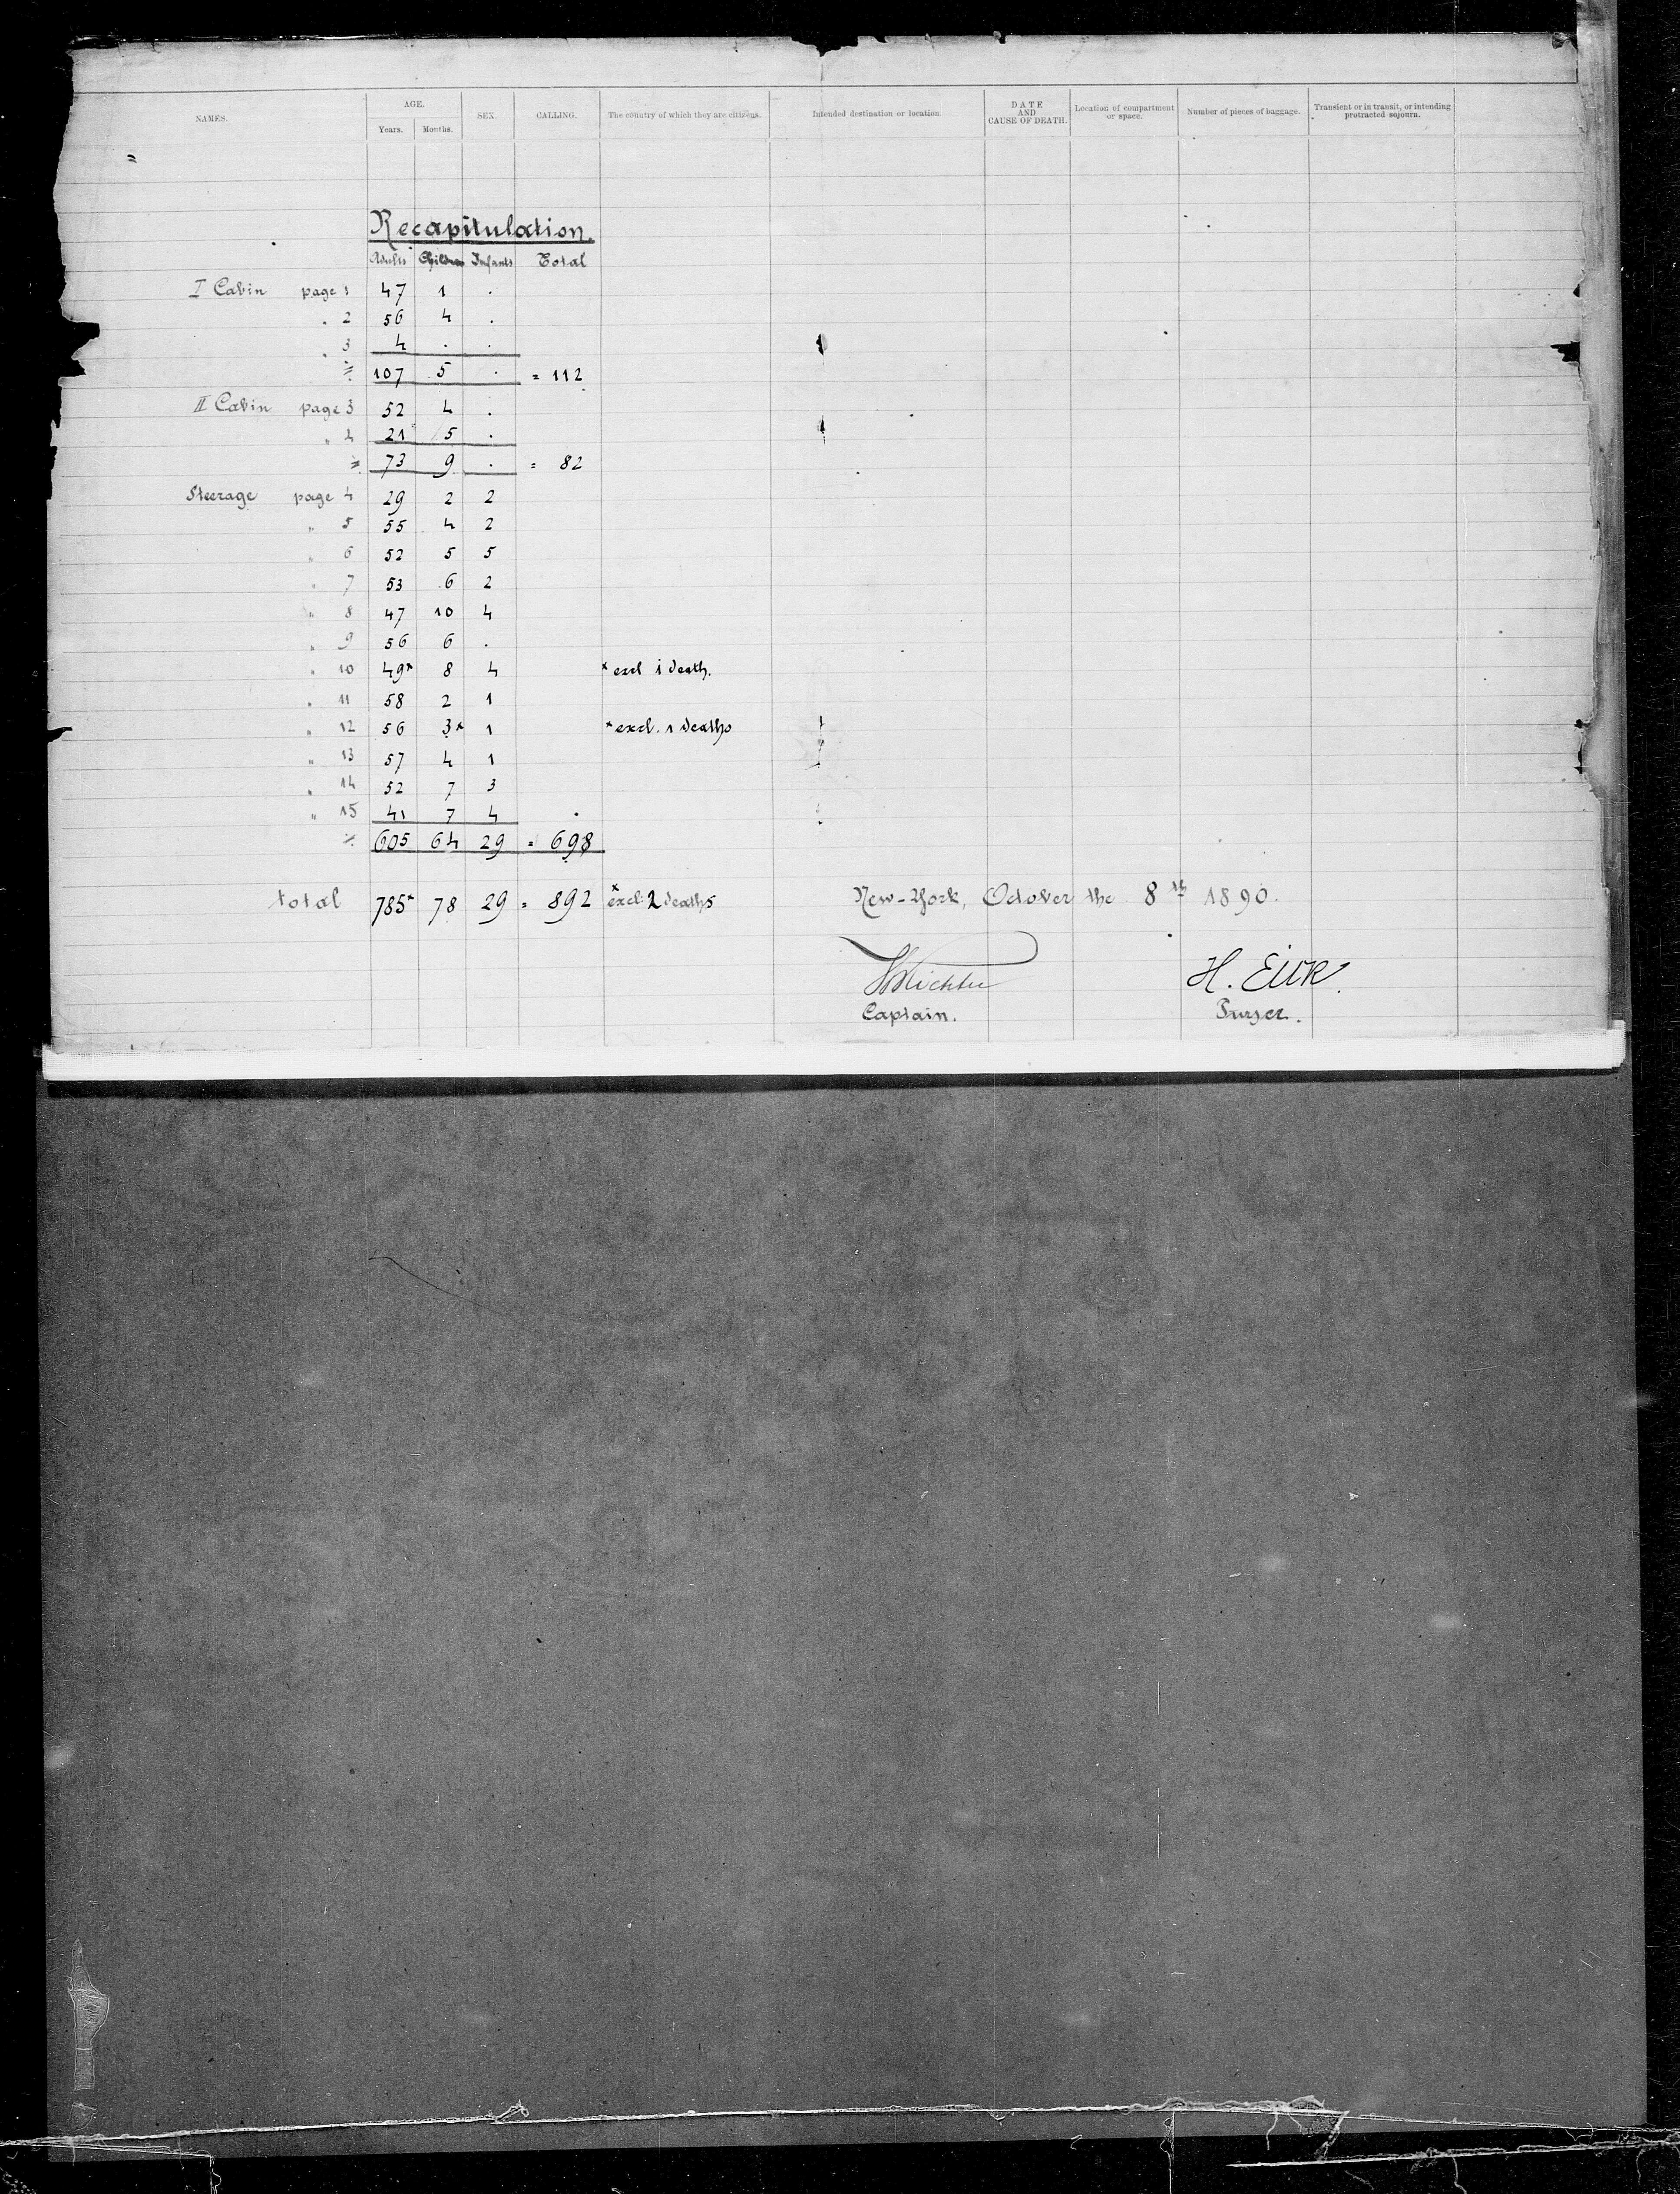 NAMES. AGE. Years. Months. SEX. CALLING. The country of which they are citizens. Intended destination or location. DATE AND CAUSE OF DEATH. Location of compartment or space. Number of pieces of baggage. Transient or in transit, or intending protracted sojourn.
Recapitulation.
Adults Children Infants Total
I Cabin page 1 47 1 .
" 2 56 4 .
" 3 4 . .
107 5 . = 112
II Cabin page 3 52 4 .
" 4 21 5 .
73 9 . = 82
Steerage page 4 29 2 2
" 5 55 4 2
" 6 52 5 5
" 7 53 6 2
" 8 47 10 4
" 9 56 6 .
" 10 49* 8 4 * excl 1 death.
" 11 58 2 1
" 12 56 3* 1 * excl. 1 deaths
" 13 57 4 1
" 14 52 7 3
" 15 41 7 4
605 64 29 = 698
total 785* 78 29 = 892 * excl. 2 deaths New-York, October the 8th 1890.
H. Eick
Captain. Purser.